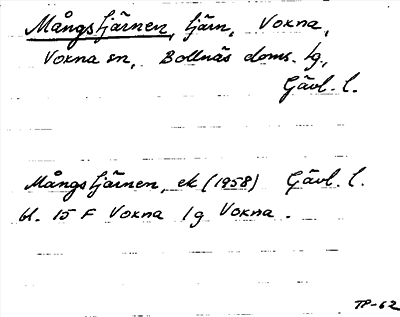 Mångstjärnen, tjärn, Voxna,
Voxna sn, Bollnäs doms. lg,
Gävl. l.
Mångstjärnen, ek (1958) Gävl. l.
bl. 15 F Voxna lg Voxna.
TP-62